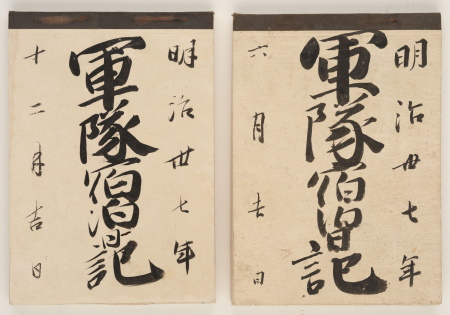 明治卅七年
軍隊宿泊記
六月吉日
明治卅七年
軍隊宿泊記
十二月吉日